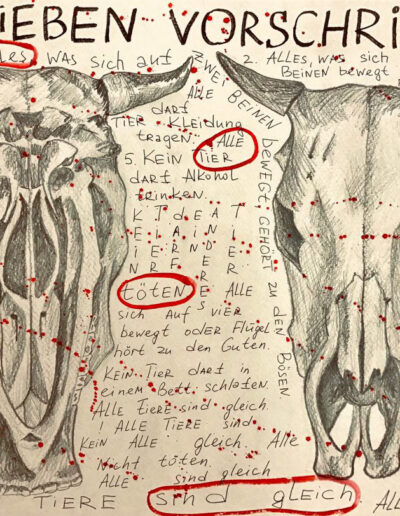 IEBEN VORSCHRI
les, WAS sich auf
ZWEI BEINEN bewegt, gehört zu den BÖSEN.
2. ALLES, WAS sich
BEINEN bewegt
ALLE
darf
TIER Kleidung
tragen. ALLE
5. KEIN TIER
darf Alkohol
trinken.
K T d e A T
E I A I N I
I E R N D E
N R F E R
töten E ALLE
sich AUF VIER
bewegt ODER Flügel
hört zu den Guten.
KEIN TIER darf in
einem Bett schlafen.
ALLE TIERE sind gleich.
! ALLE TIERE sind
KEIN ALLE gleich. Alle
Nicht töten
ALLE sind gleich
TIERE sind gleich. ALL